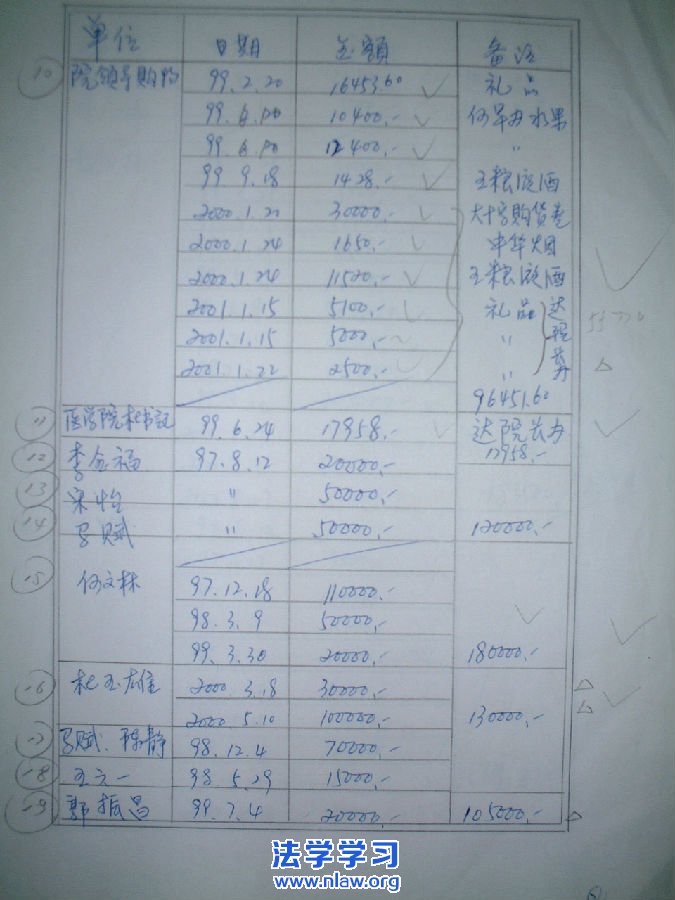 单位 日期 金额 备注
10 院领导购物 99.2.20 16453.60 礼品
99.6. 10400.- 水果
99.6. 12400.- "
99 9.18 1428.- 五粮液酒
2000.1.21 30000.- 大十字购货卷
2000.1.24 1650.- 中华烟
2000.1.24 11520.- 五粮液酒
2001.1.15 5100.- 礼品 送院长办
2001.1.15 5000.- "
2001.1.22 2500.- "
96451.60
11 医学院书记 99.6.24 17958.- 送院长办
17958.-
12 李金福 97.8.12 20000.-
13 宋怡 " 50000.-
14 马赋 " 50000.- 120000.-
15 何文林 97.12.18 110000.-
98.3.9 50000.-
99.3.30 20000.- 180000.-
16 2000 3.18 30000.-
2000.5.10 100000.- 130000.-
17 马赋、陈静 98.12.4 70000.-
18 王六一 98.5.29 15000.-
19 郭振昌 99.7.4 20000.- 105000.-
法学学习
www.nlaw.org